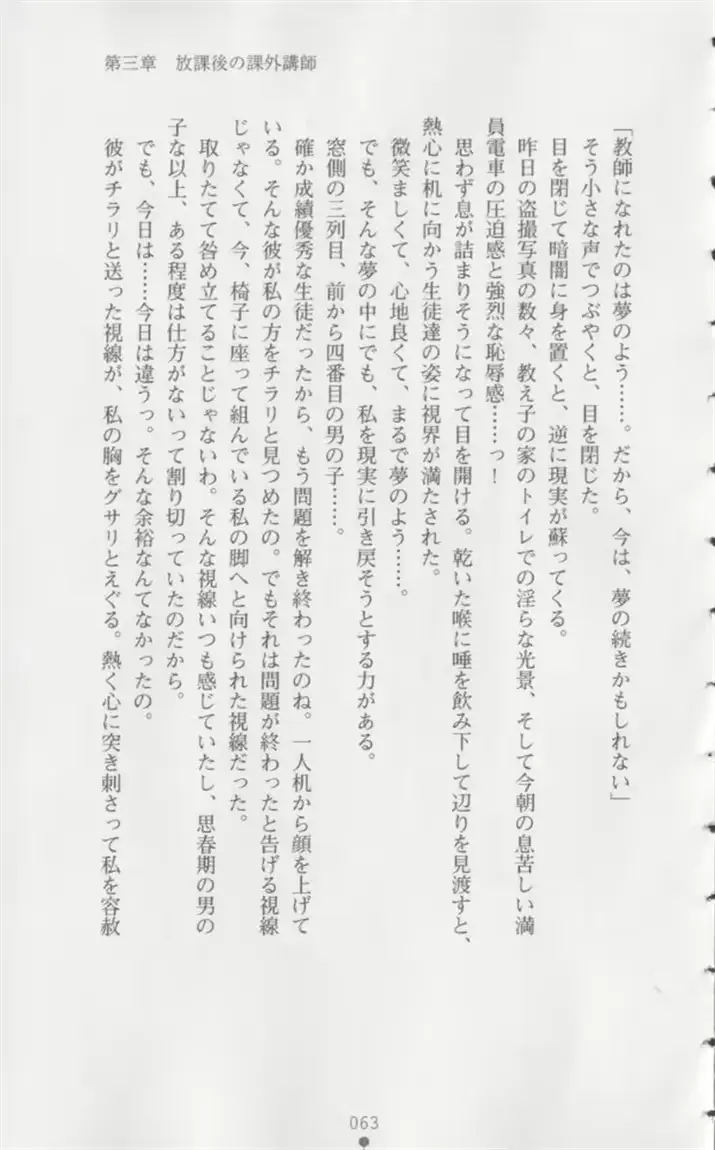 第三章　放課後の課外講師
「教師になれたのは夢のよう……。だから、今は、夢の続きかもしれない」
そう小さな声でつぶやくと、目を閉じた。
目を閉じて暗闇に身を置くと、逆に現実が蘇ってくる。
昨日の盗撮写真の数々、教え子の家のトイレでの淫らな光景、そして今朝の息苦しい満
員電車の圧迫感と強烈な恥辱感……っ！
思わず息が詰まりそうになって目を開ける。乾いた喉に唾を飲み下して辺りを見渡すと、
熱心に机に向かう生徒達の姿に視界が満たされた。
微笑ましくて、心地良くて、まるで夢のよう……。
でも、そんな夢の中にでも、私を現実に引き戻そうとする力がある。
窓側の三列目、前から四番目の男の子……。
確か成績優秀な生徒だったから、もう問題を解き終わったのね。一人机から顔を上げて
いる。そんな彼が私の方をチラリと見つめたの。でもそれは問題が終わったと告げる視線
じゃなくて、今、椅子に座って組んでいる私の脚へと向けられた視線だった。
取りたてて咎め立てることじゃないわ。そんな視線いつも感じていたし、思春期の男の
子な以上、ある程度は仕方がないって割り切っていたのだから。
でも、今日は……今日は違うっ。そんな余裕なんてなかったの。
彼がチラリと送った視線が、私の胸をグサリとえぐる。熱く心に突き刺さって私を容赦
063